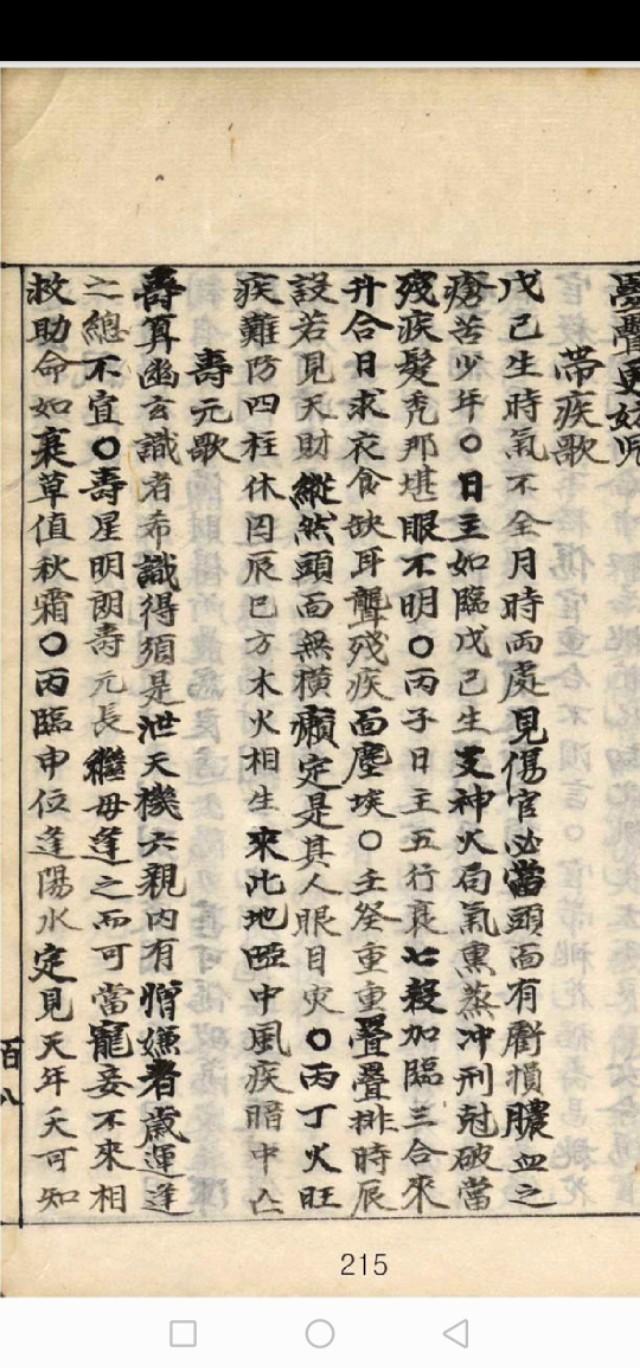 疊更妨
帶疾歌
戊己生時氣不全月時兩處見傷官必當頭面有虧損膿血之
瘡苦少年○日主如臨戊己生支神火局氣熏蒸冲刑尅破當
殘疾髮禿那堪眼不明○丙子日主五行衰七殺加臨三合來
升合日求衣食缺耳聾殘疾面塵埃○壬癸重重疊疊排時辰
設若見天財縱然頭面無橫癩定是其人眼目灾○丙丁火旺
疾難防四柱休囚辰巳方木火相生來此地啞中風疾暗中亡
壽元歌
壽算幽玄識者希識得須是泄天機六親內有憎嫌者歲運逢
之總不宜○壽星明朗壽元長繼母逢之而可當寵妾不來相
救助命如衰草值秋霜○丙臨申位逢陽水定見天年夭可知
百八
215